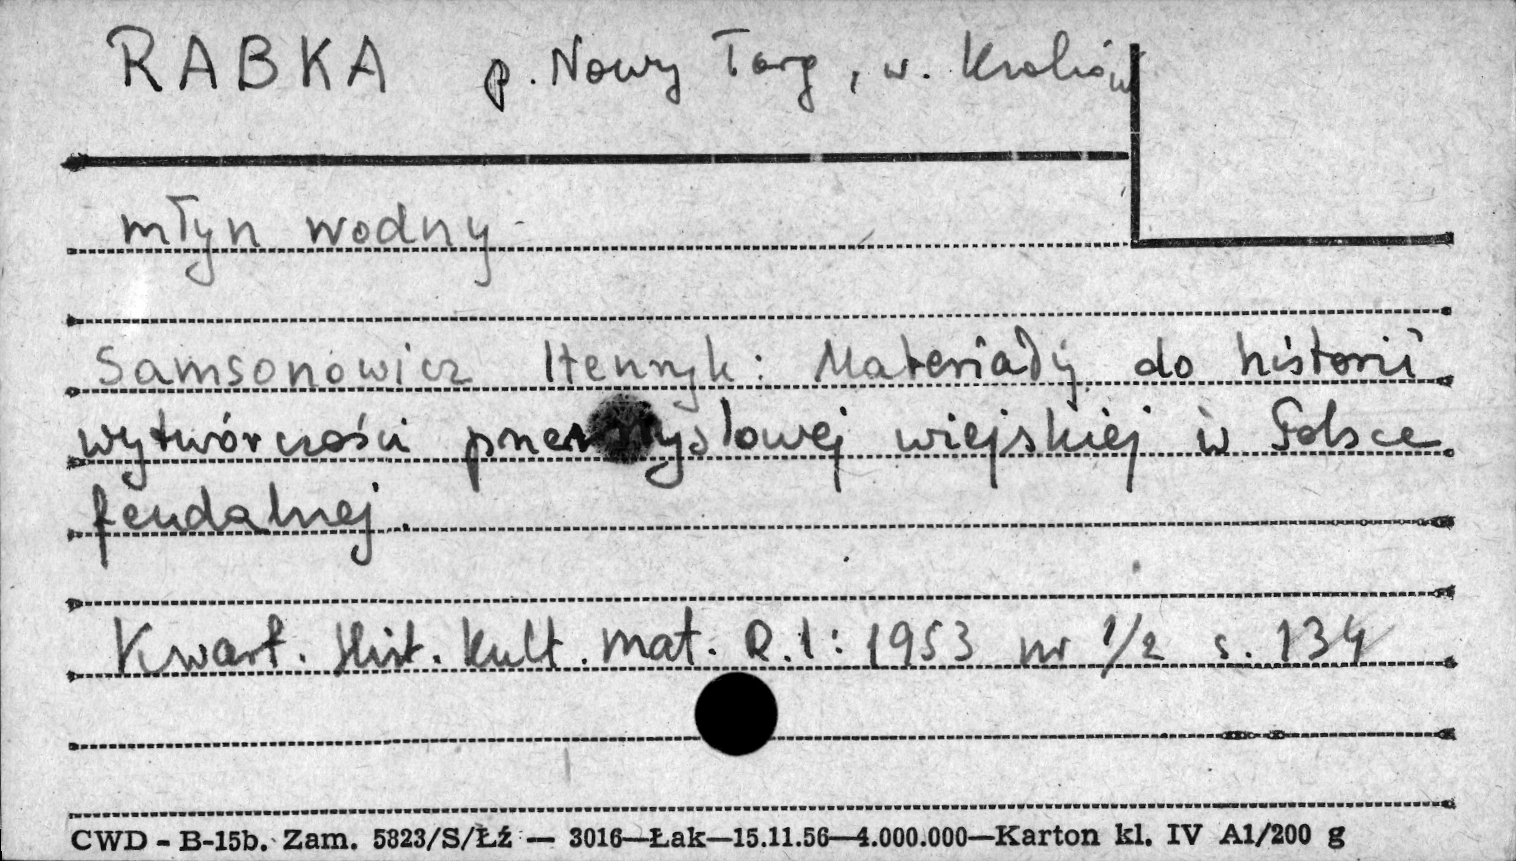 RABKA p. Nowy Targ, w. Kraków
młyn wodny
Samsonowicz Henryk: Materiały do historii
wytwórczości przemysłowej wiejskiej w Polsce
feudalnej.
Kwart. Hist. Kult. mat. R.1: 1953 nr 1/2 s. 134
CWD - B-15b. Zam. 5823/S/Łż — 3016—Łak—15.11.56—4.000.000—Karton kl. IV A1/200 g